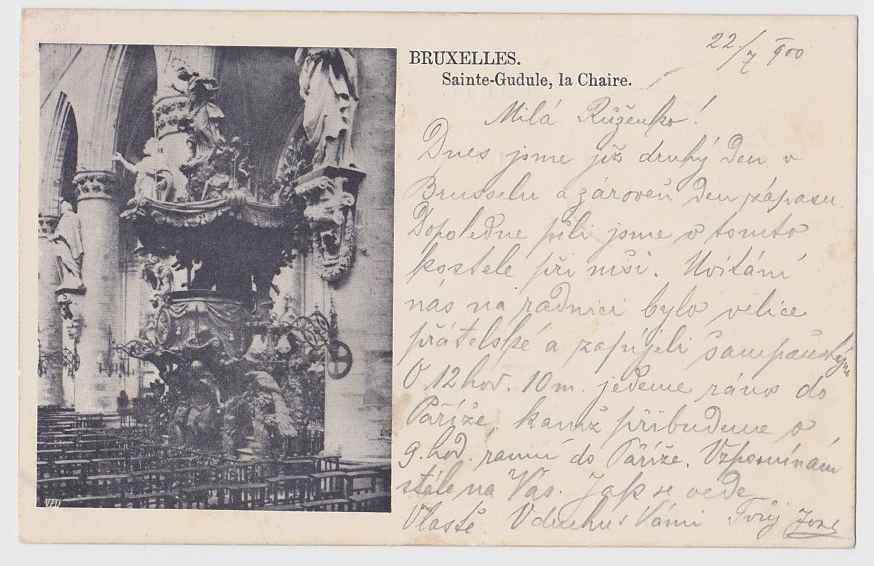 BRUXELLES.
Sainte-Gudule, la Chaire.
22/7 900
Milá Růženko!
Dnes jsme již druhý den v
Brusselu a zároveň den zápasu.
Dopoledne pěli jsme v tomto
kostele při mši. Uvítání
nás na radnici bylo velice
přátelské a zapíjeli šampaňským
O 12 hod. 10 m. jedeme ráno do
Paříže, kamž přibudeme o
9. hod. ranní do Paříže. Vzpomínám
stále na Vás. Jak se vede
Vlastě V duchu s Vámi Tvůj